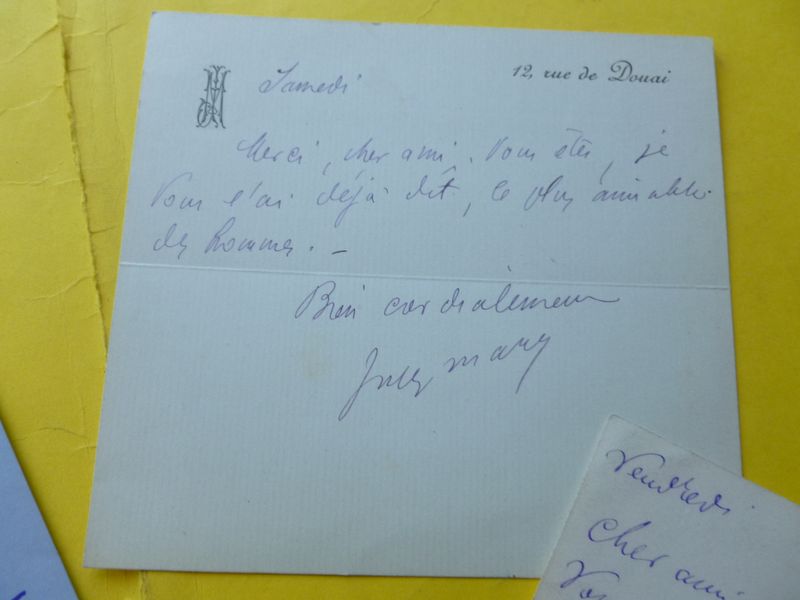 12, rue de Douai
Samedi
Merci, cher ami. Vous êtes, je
vous l'ai déjà dit, le plus aimable
des hommes. –
Bien cordialement
Jules Mary
Vendredi
Cher ami
Vou